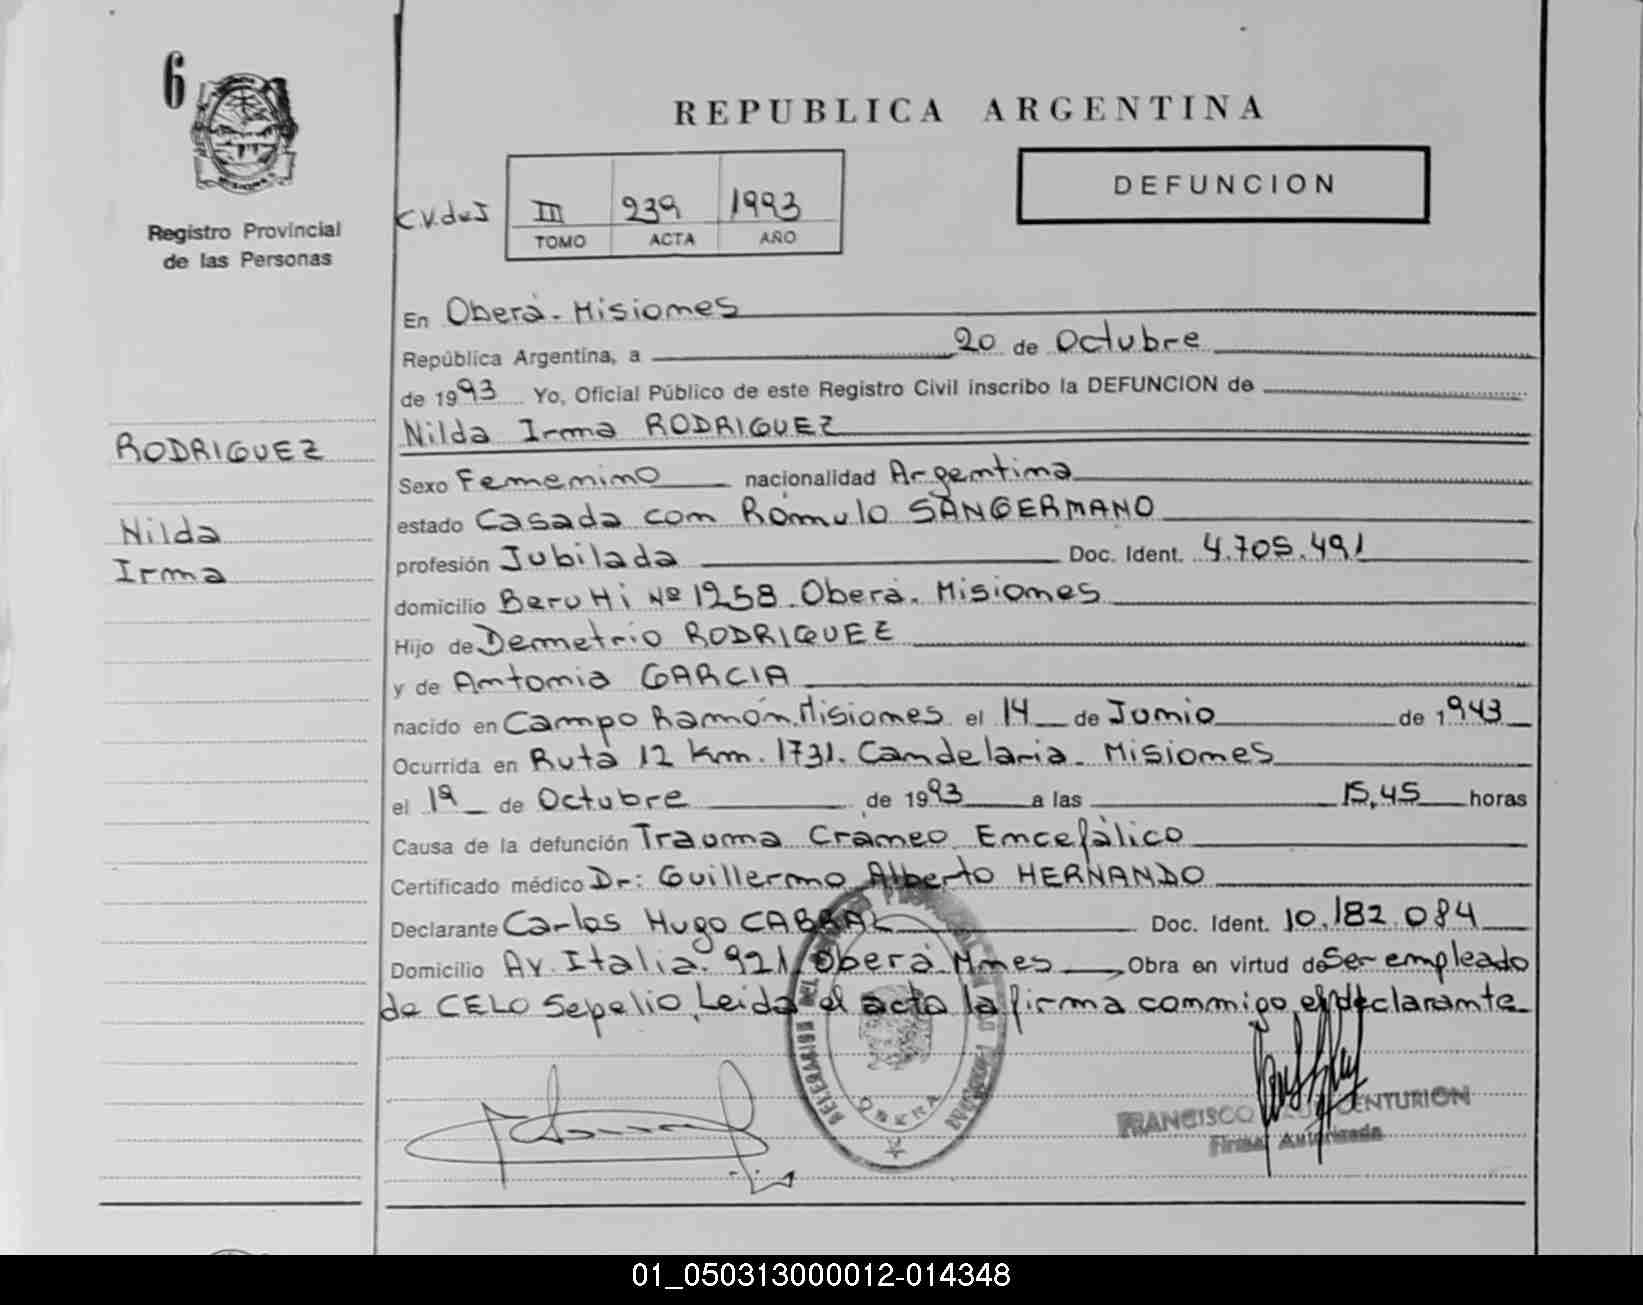 6
REPUBLICA ARGENTINA
DEFUNCION
C.V.deJ III 239 1993
TOMO ACTA AÑO
Registro Provincial
de las Personas
En Oberá - Misiones
República Argentina, a 20 de Octubre
de 1993 Yo, Oficial Público de este Registro Civil inscribo la DEFUNCION de
Nilda Irma RODRIGUEZ
RODRIGUEZ
Nilda
Irma
Sexo Femenino nacionalidad Argentina
estado Casada con Rómulo SANGERMANO
profesión Jubilada Doc. Ident. 4.705.491
domicilio Berutti Nº 1258. Oberá. Misiones
Hijo de Demetrio RODRIGUEZ
y de Antonia GARCIA
nacido en Campo Ramón. Misiones el 14 de Junio de 1943
Ocurrida en Ruta 12 Km. 1731. Candelaria. Misiones
el 19 de Octubre de 1993 a las 15,45 horas
Causa de la defunción Trauma Craneo Encefálico
Certificado médico Dr: Guillermo Alberto HERNANDO
Declarante Carlos Hugo CABRAL Doc. Ident. 10.182.084
Domicilio Av. Italia. 921. Oberá. Mnes Obra en virtud de Ser empleado
de CELO Sepelio. Leida el acta la firma conmigo, el declarante
OBERA
FRANCISCO CENTURION
Firma Autorizada
01_050313000012-014348